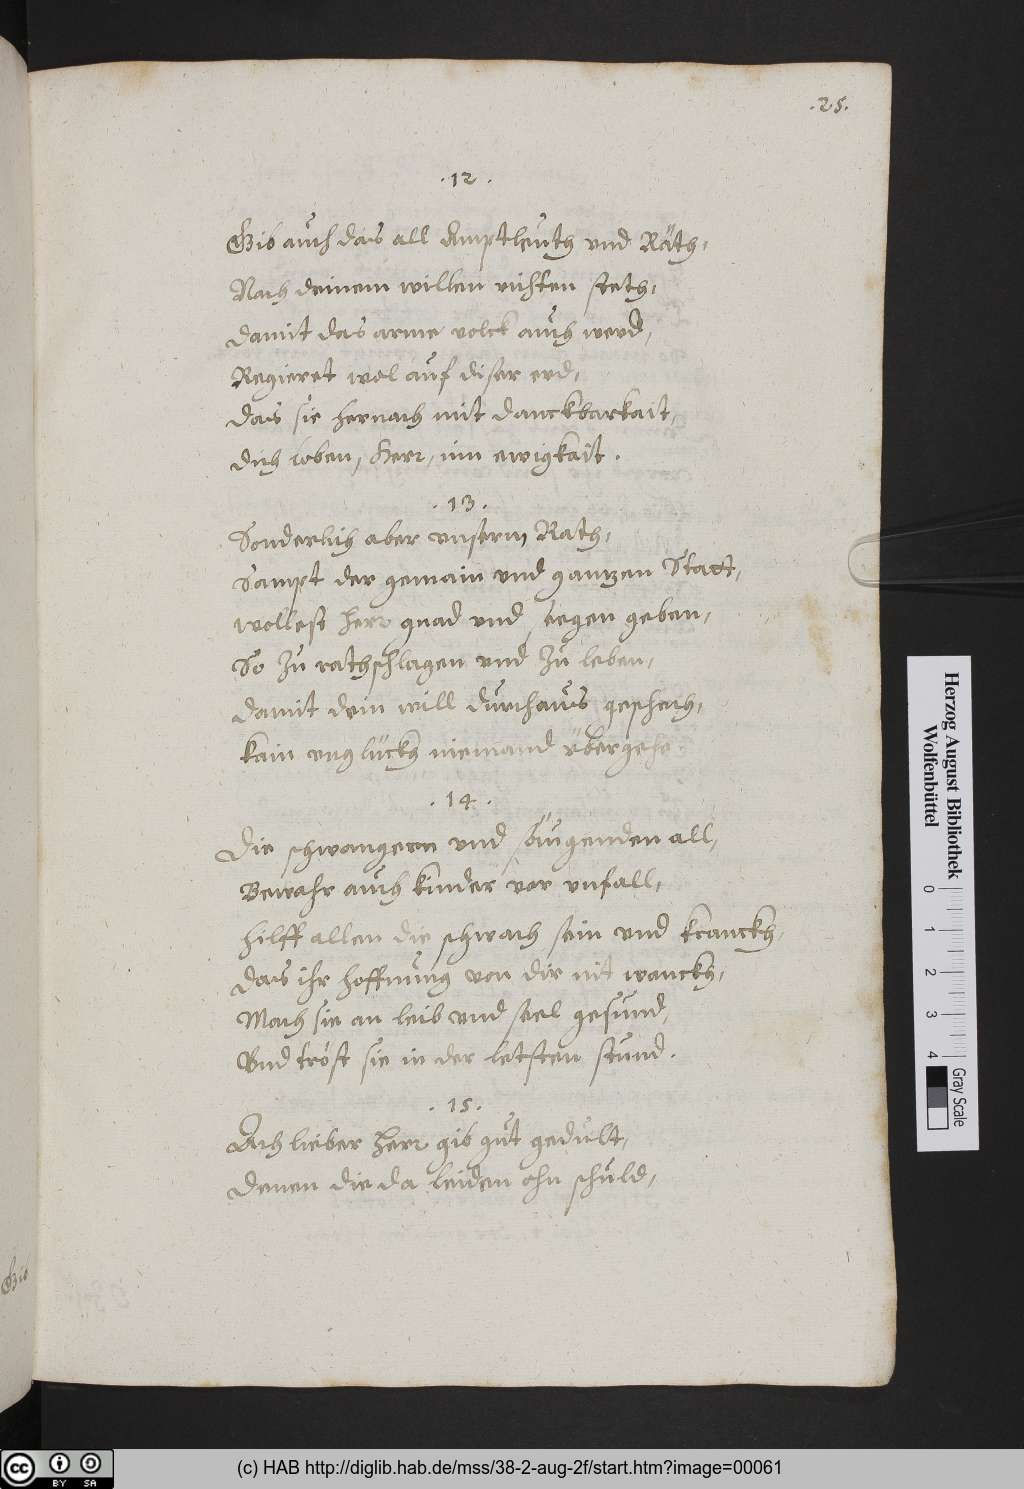 .25.
.12.
Gib auch das all Amptleuth und Räth,
Nach deinem willen richten steth,
damit das arme volck auch werd,
Regieret wol auf diser erd,
das sie hernach mit danckbarkait,
dich loben, Herr, inn ewigkait.
.13.
Sonderlich aber unserm Rath,
Sampt der gemain und gantzen Statt,
wollest Herr gnad und segen geben,
So zu rathschlagen und zu leben,
damit dein will durchaus geschech,
kain unglückh niemand übergehe
.14.
Die schwangern und säugenden all,
Bewahr auch kinder vor unfall,
hilff allen die schwach sein und kranckh,
das ihr hoffnung von dir nit wanckh,
Mach sie an leib und seel gesund,
Und tröst sie in der letsten stund.
.15.
Ach lieber Herr gib gut gedult,
denen die da leiden ohn schuld,
Gib
Herzog August Bibliothek
Wolfenbüttel
0 1 2 3 4
Gray Scale
cc BY SA
(c) HAB http://diglib.hab.de/mss/38-2-aug-2f/start.htm?image=00061